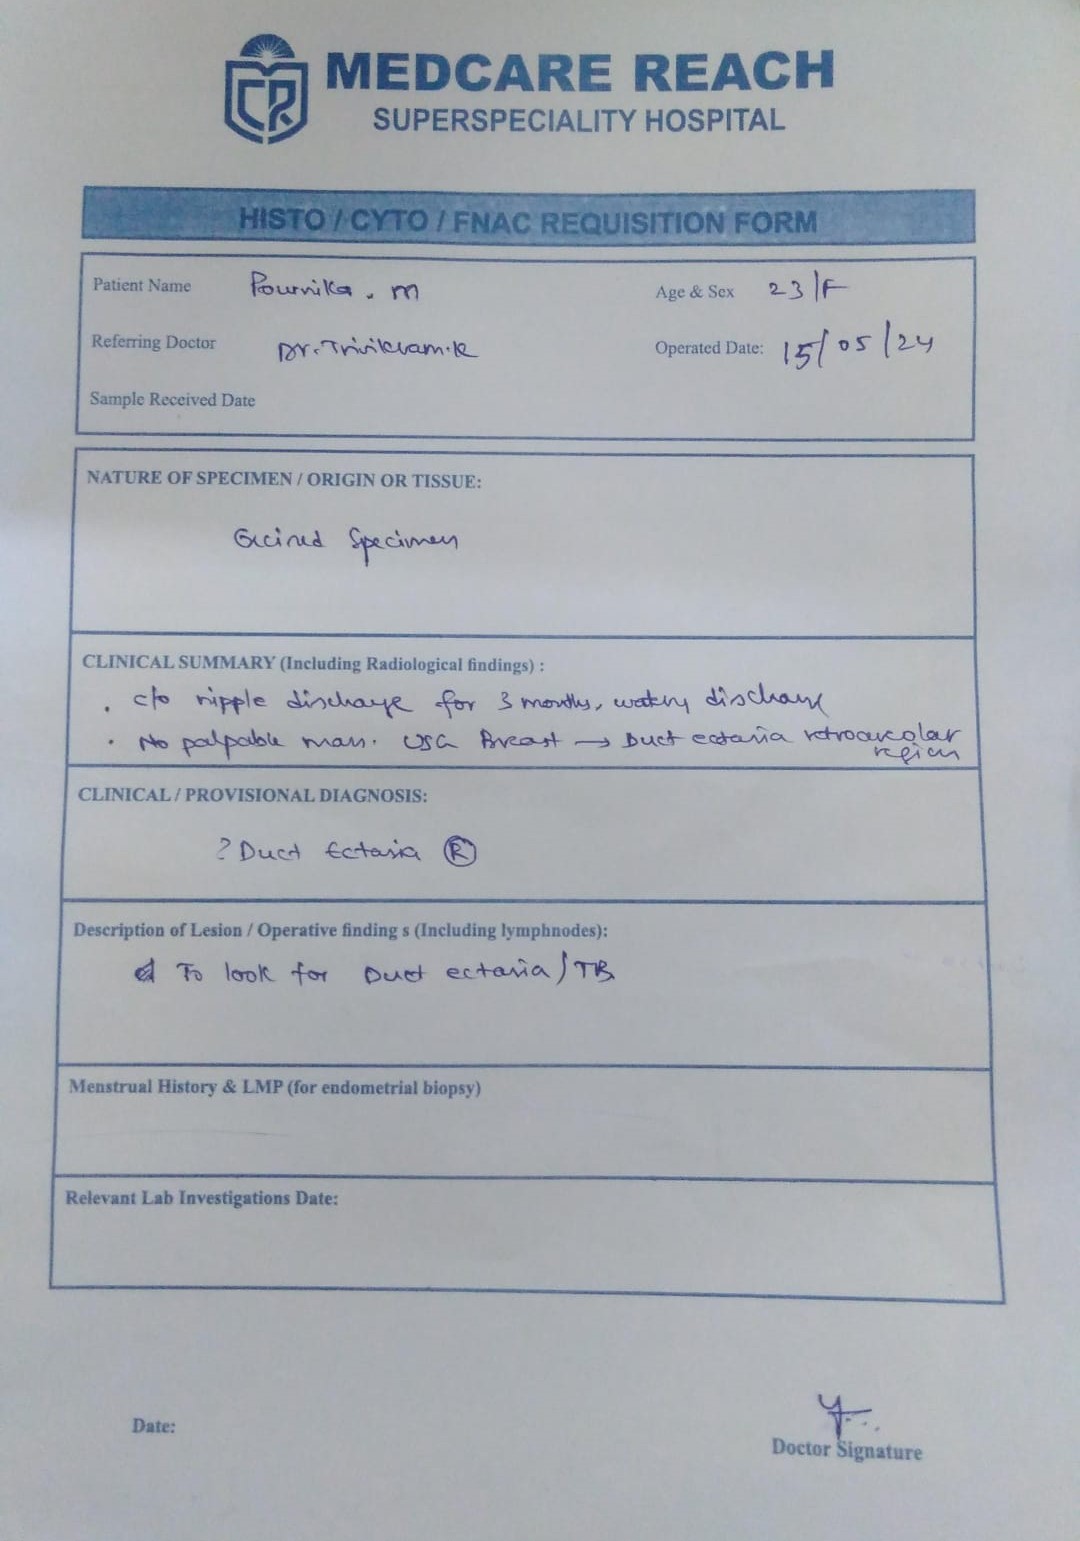 MEDCARE REACH
SUPERSPECIALITY HOSPITAL
HISTO / CYTO / FNAC REQUISITION FORM
Patient Name Pournika . M Age & Sex 23/F
Referring Doctor Dr. Trivikram.K Operated Date: 15/05/24
Sample Received Date
NATURE OF SPECIMEN / ORIGIN OR TISSUE:
Excised Specimen
CLINICAL SUMMARY (Including Radiological findings) :
. c/o nipple discharge for 3 months, watery discharge
. No palpable mass. USG Breast → Duct ectasia retroareolar
region
CLINICAL / PROVISIONAL DIAGNOSIS:
? Duct Ectasia Ⓡ
Description of Lesion / Operative finding s (Including lymphnodes):
To look for Duct ectasia / TB
Menstrual History & LMP (for endometrial biopsy)
Relevant Lab Investigations Date:
Date:
Doctor Signature